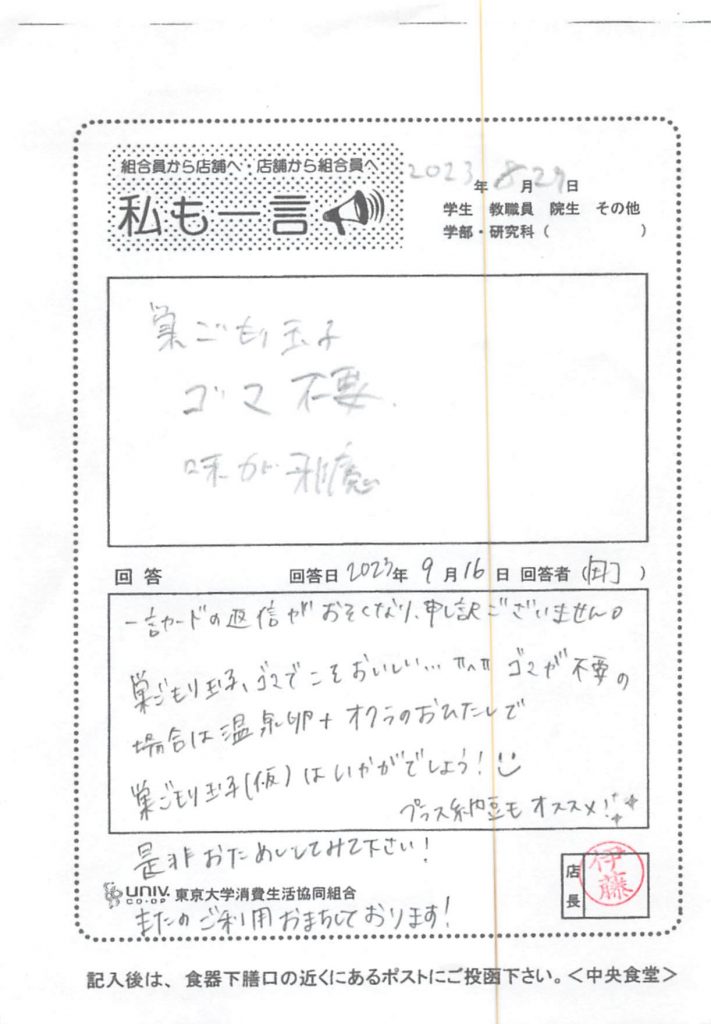 組合員から店舗へ・店舗から組合員へ
私も一言
2023年 8月29日
学生 教職員 院生 その他
学部・研究科 ( )
巣ごもり玉子
ゴマ 不要.
味が邪魔
回答 回答日 2023年 9月16日 回答者 ( )
一言カードの返信がおそくなり、申し訳ございません。
巣ごもり玉子、ゴマでこそおいしい… ゴマが不要の
場合は温泉卵+オクラのおひたしで
巣ごもり玉子(仮)はいかがでしょう!
プラス納豆もオススメ!
是非おためししてみて下さい!
UNIV. CO-OP 東京大学消費生活協同組合
またのご利用おまちしております!
店長 伊藤
記入後は、食器下膳口の近くにあるポストにご投函下さい。<中央食堂>